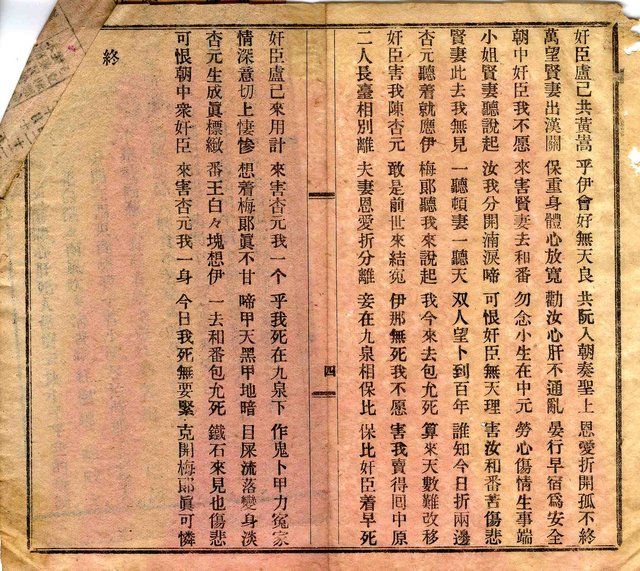 奸臣盧己共黃嵩 乎伊會好無天良 共阮入朝奏聖上 恩愛折開孤不終
萬望賢妻出漢關 保重身體心放寬 勸汝心肝不通亂 晏行早宿爲安全
朝中奸臣我不愿 來害賢妻去和番 勿念小生在中元 勞心傷情生事端
小姐賢妻聽說起 汝我分開湳淚啼 可恨奸臣無天理 害汝和番苦傷悲
賢妻此去我無見 一聽頓妻一聽天 双人望卜到百年 誰知今日折兩邊
杏元聽着就應伊 梅郎聽我來說起 我今來去包允死 算來天數難改移
奸臣害我陳杏元 敢是前世來結冤 伊那無死我不愿 害我賣得囘中原
二人長臺相別離 夫妻恩愛折分離 妾在九泉相保比 保比奸臣着早死
四
奸臣盧己來用計 來害杏元我一个 乎我死在九泉下 作鬼卜甲力冤家
情深意切上悽慘 想着梅郎眞不甘 啼甲天黑甲地暗 目屎流落變身淡
杏元生成眞標緻 番王白々塊想伊 一去和番包允死 鐵石來見也傷悲
可恨朝中衆奸臣 來害杏元我一身 今日我死無要緊 克開梅郎眞可憐
終